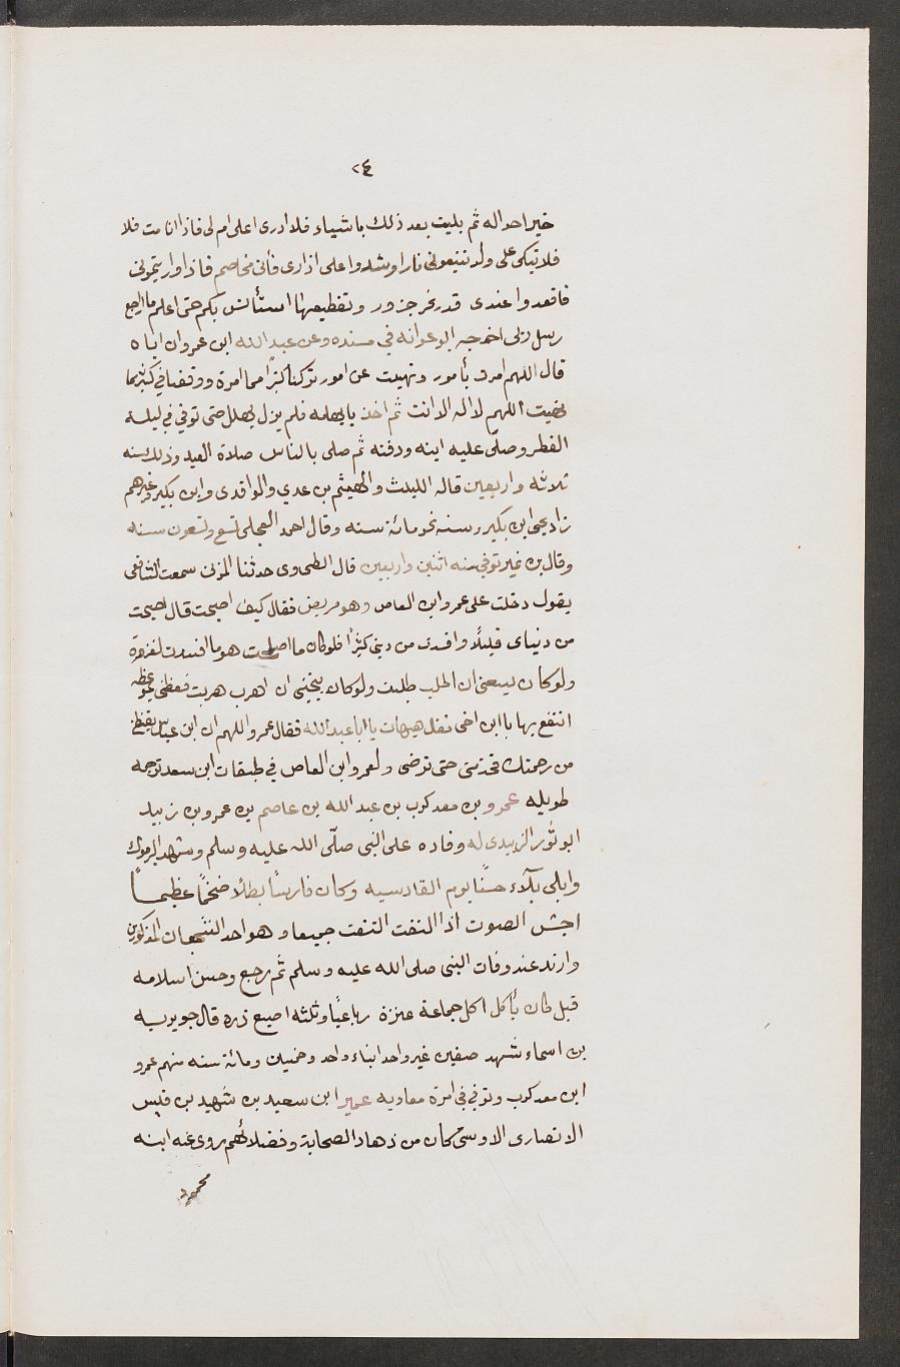 ٢٤
خيرا حواله ثم بليت بعد ذلك باشياء فلا ادرى اعلى ام لى فاذا انا مت فلا
فلا تبكى على ولا تتبعونى نارا وشدوا على ازارى فأنى مخاصم فاذا واريتمونى
فاقعدوا عندى قدر نحر جزور وتقطيعها استأنس بكم حتى اعلم ما اراجع
رسل ربى اخرجه ابو عوانه في مسنده وعن عبد الله ابن عمرو ان اباه
قال اللهم امرت بأمور ونهيت عن امور تركنا كثرًا مما امرة ووقعنا في كثير مما
نهيت اللهم لا اله الا انت ثم اخذ بابهامه فلم يزل يهلل حتى توفي في ليلة
الفطر وصلّى عليه ابنه ودفنه ثم صلى بالناس صلاة العيد وذلك سنه
ثلاثه واربعين قاله الليث والهيثم بن عدي والواقدى وابن بكير وغيرهم
زاد يحيى ابن بكير وسنه نحو مائة سنه وقال احمد العجلى تسع وتسعون سنه
وقال بن نمير توفي سنه اثنين واربعين قال الطحاوى حدثنا المزنى سمعت الشافعى
يقول دخلت على عمرو ابن العاص وهو مريض فقال كيف اصبحت قال اصبحت
من دنياى قليلًا وافسدت من دينى كثيرًا فلو كان ما اصلحت هو ما افسدت لفزت
ولو كان ينفعنى ان اطلب طلبت ولو كان ينجينى ان اهرب هربت فعظنى بموعظه
انتفع بها يا ابن اخى فقال هيهات يا ابا عبد الله فقال عمرو اللهم ان ابن عباس يقنطنى
من رحمتك فخذ منى حتى ترضى ولعمرو ابن العاص في طبقات ابن سعد ترجمه
طويله عمرو بن معدكرب بن عبد الله بن عاصم بن عمرو بن زبيد
ابو ثور الزبيدى له وفاده على النبى صلّى الله عليه وسلم وشهد اليرموك
وابلى بلآء حسنًا يوم القادسيه وكان فارسًا بطلًا ضخمًا عظيمـًا
اجش الصوت اذا التفت التفت جميعا وهو احد الشجعان المذكورين
وارتد عند وفات النبى صلى الله عليه وسلم ثم رجع وحسن اسلامه
قيل كان يأكل اكل جماعة عنزة رباعيًا وثلثه اصيع ذره قال جويريه
بن اسماء شهد صفين غير واحد ابناء واحد وخمسين ومائة سنه منهم عمرو
ابن معدكرب وتوفى في امرة معاويه عمير ابن سعيد بن شهيد بن قيس
الانصارى الاوسى كان من زهاد الصحابة وفضلائهم روى عنه ابنه
محمود